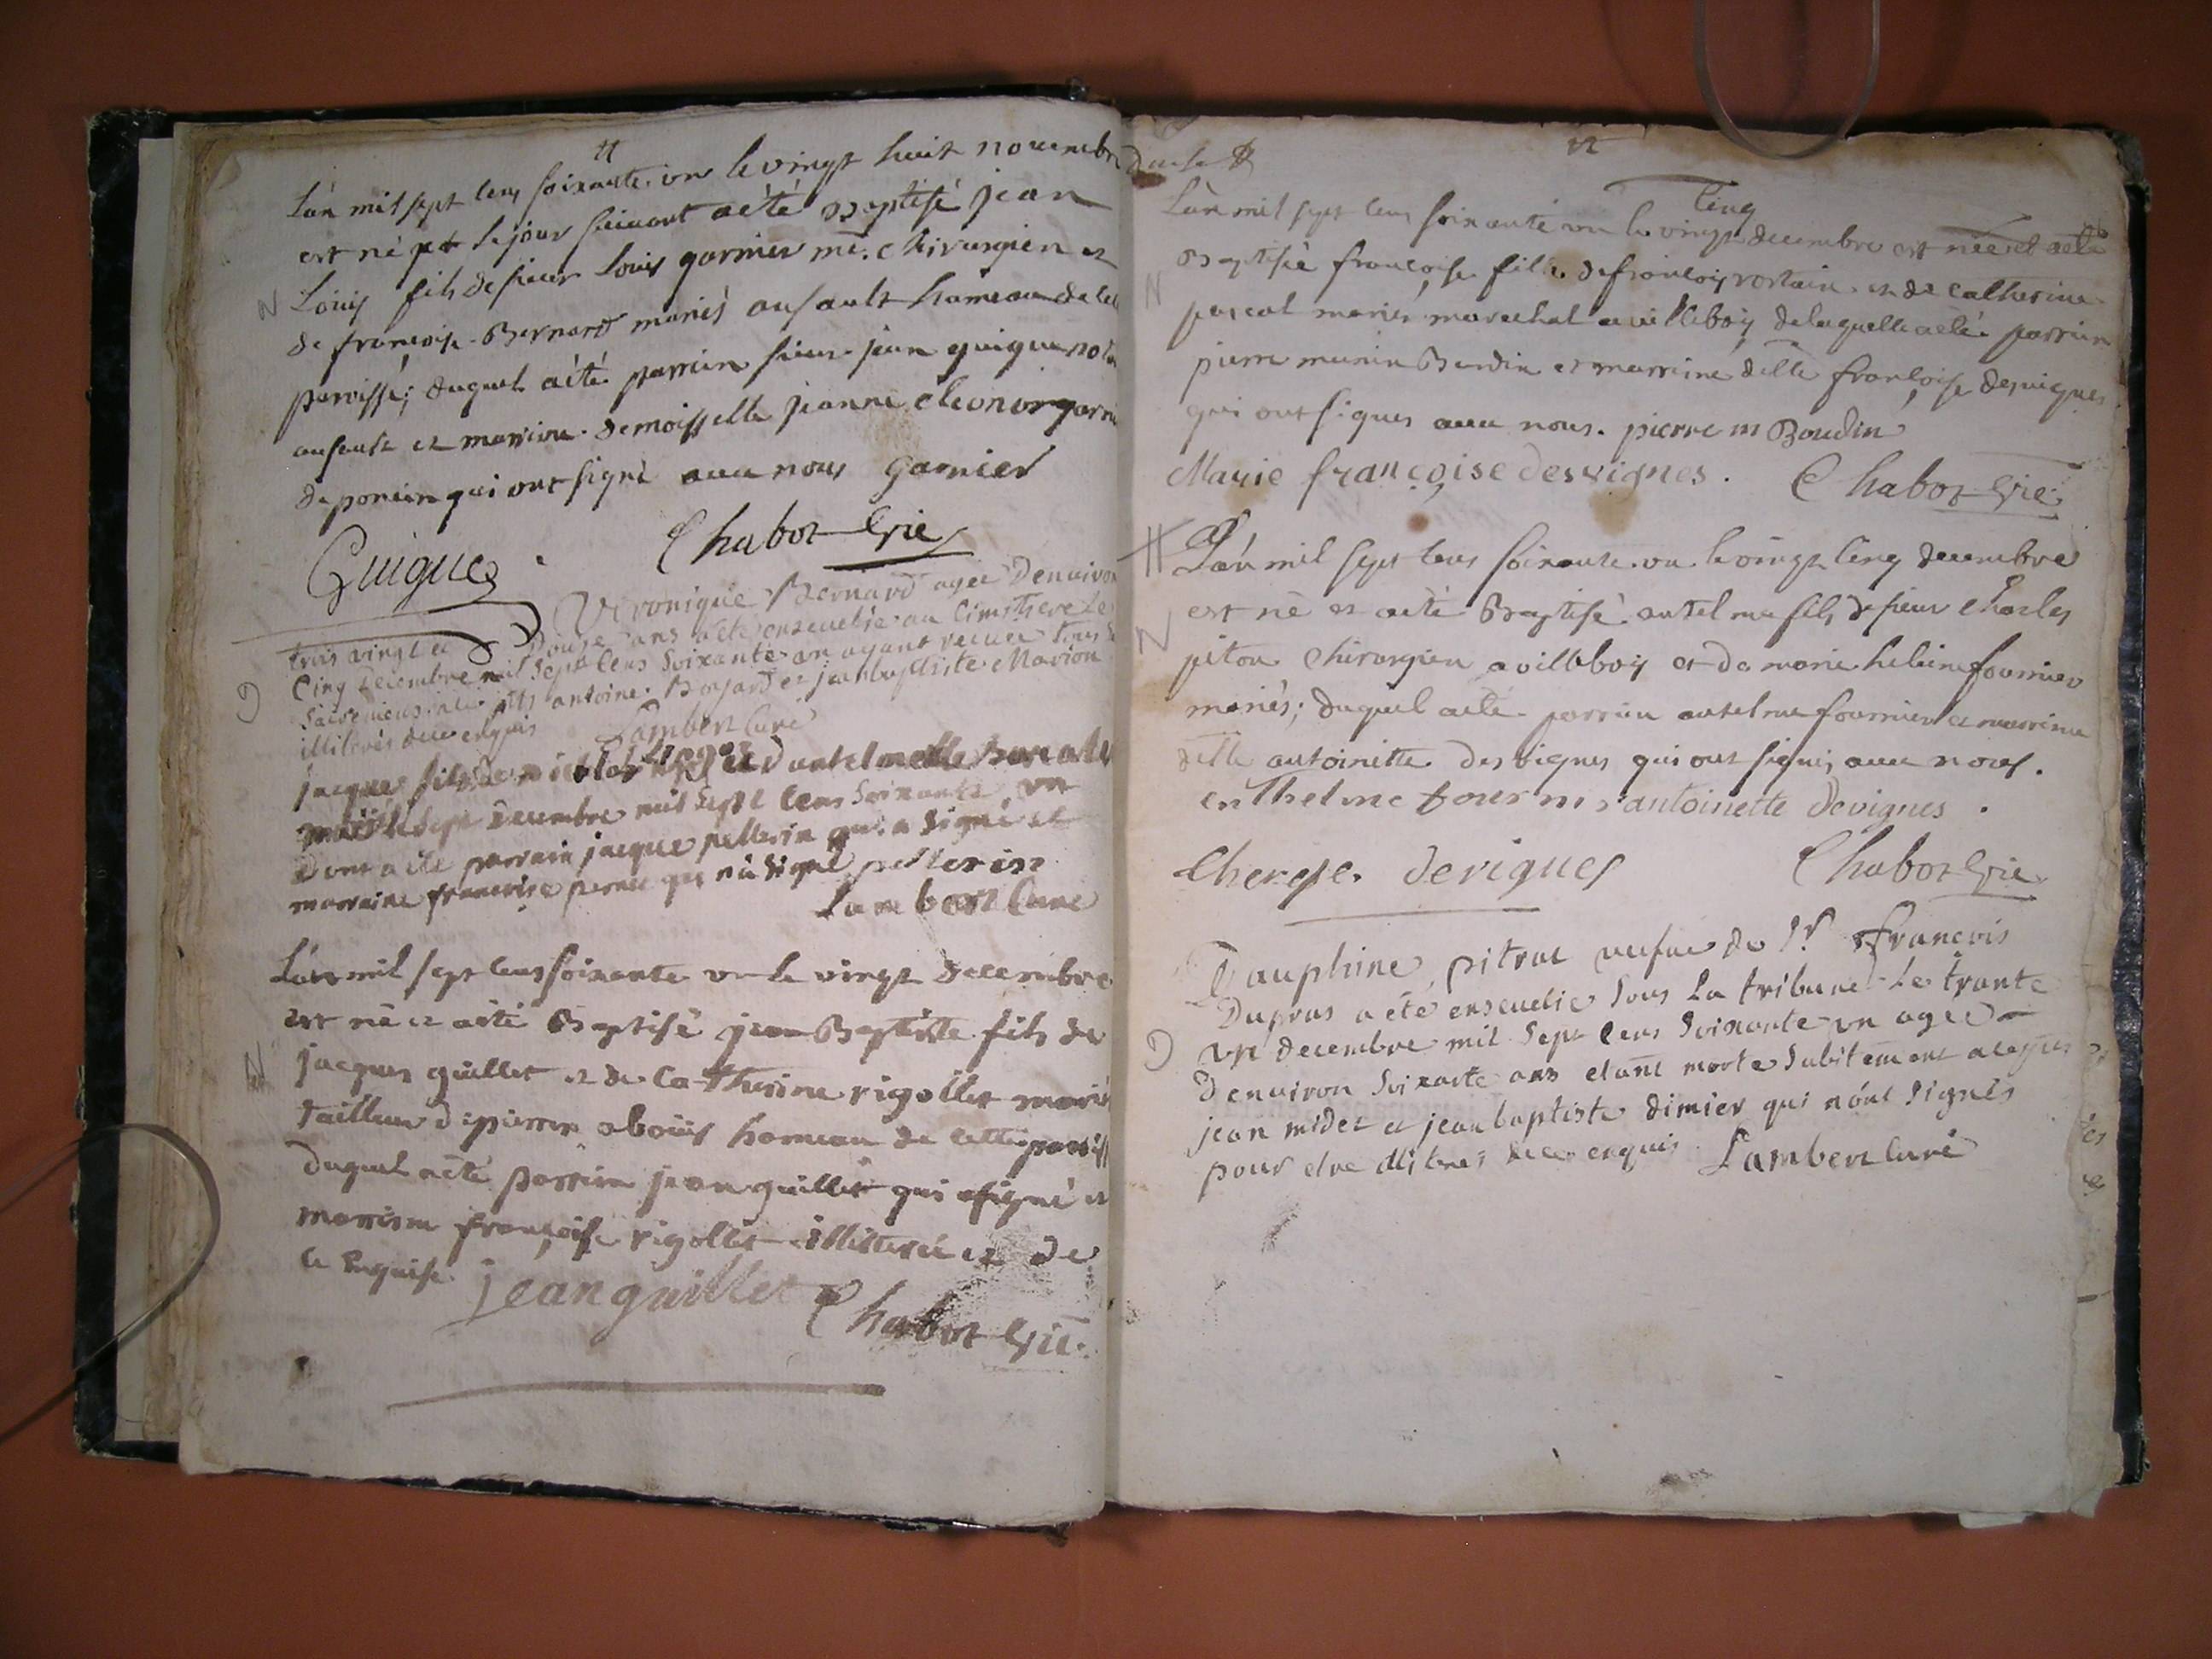 L'an mil sept cens soixante un le vingt huit novembre
est né et le jour suivant a été Baptisé jean
Louis fils de sieur Louis garnier me. chirurgien et
de françoise Bernard mariés au sault hameau de cette
paroisse; duquel a été parrein sieur jean guigue
au sault et marrine demoisselle jeanne éléonor garnier
de poncin qui ont signé avec nous Garnier
Guigue Chabot Vie
Veronique Bernard agee Denviron
trois vingt et Douse ans a été ensevelie au Cimitiere le
Cinq decembre mil sept Cens Soixante un ayant receu tous
antoine Bojard et jeanbaptiste Marion
illiterés de ce enquis Lambert Curé
jacque fils de et d'antelmette
sept Decembre mil sept Cens Soixante un
Dont a été parrain jacque pellerin qui a signé et
marraine françoise qui n'a signé pellerin
Lambert Curé
L'an mil sept cens soixante un le vingt decembre
est né et a été Baptisé jean Baptiste fils de
jacques guillet et de Catherine rigollet mariés
tailleur de pierre a bouis hameau de cette paroisse
duquel a été parrin jean guillet qui a signé et
marrine françoise rigollet illiterée et de
ce enquise. jean guillet Chabot Vie.
L'an mil sept cens soixante un le vingt cinq decembre est née et a été
Baptisée françoise fille de françois rostain et de catherine
pascal mariés marechal a villeboy de laquelle a été parrin
pierre munin Boudin et marrine delle françoise desvignes
qui ont signés avec nous. pierre m Boudin
Marie françoise desvignes. Chabot Vie.
L'an mil sept cens soixante un le vingt cinq decembre
est né et a été Baptisé antelme fils de sieur Charles
piton Chirurgien a villeboy et de marie helene fournier
mariés; duquel a été parrin antelme fournier et marrine
delle antoinette desvignes qui ont signés avec nous.
enthelme fournir antoinette devignes.
therese devignes Chabot Vie.
Dauphine pitrat vefue de Sr. François
Dupras a été ensevelie sous la tribune le trante
un decembre mil sept Cens soixante un agée
Denviron soixante ans etant morte subitement
jean midet et jean baptiste dimier qui n'ont signés
pour etre illiterés de ce enquis Lambert Curé